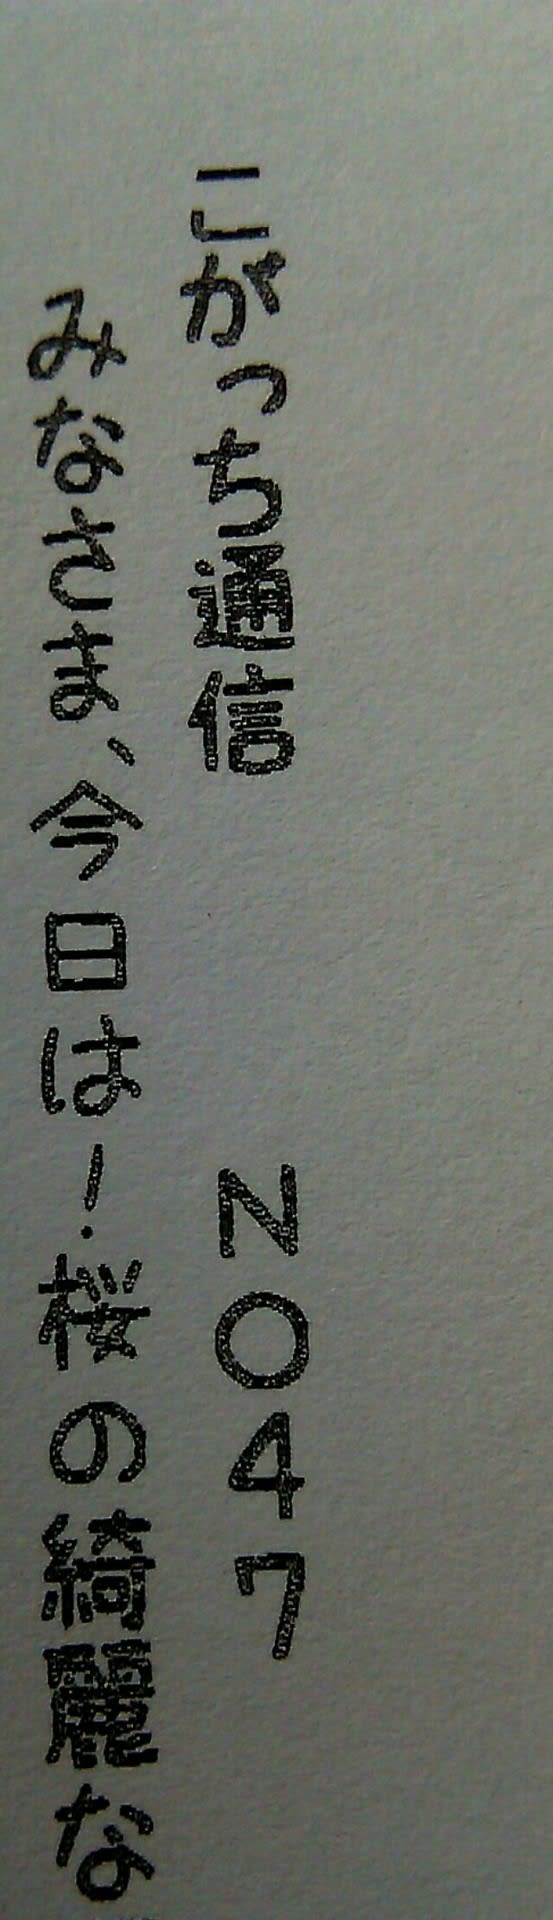 こがっち通信　　　NO47
みなさま、今日は！桜の綺麗な